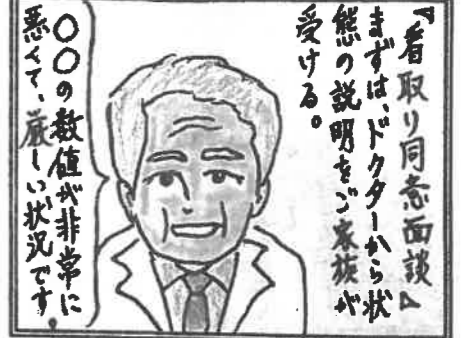 『看取り同意面談』
まずは、ドクターから状
態の説明をご家族が
受ける。
〇〇の数値が非常に
悪くて、厳しい状況です。